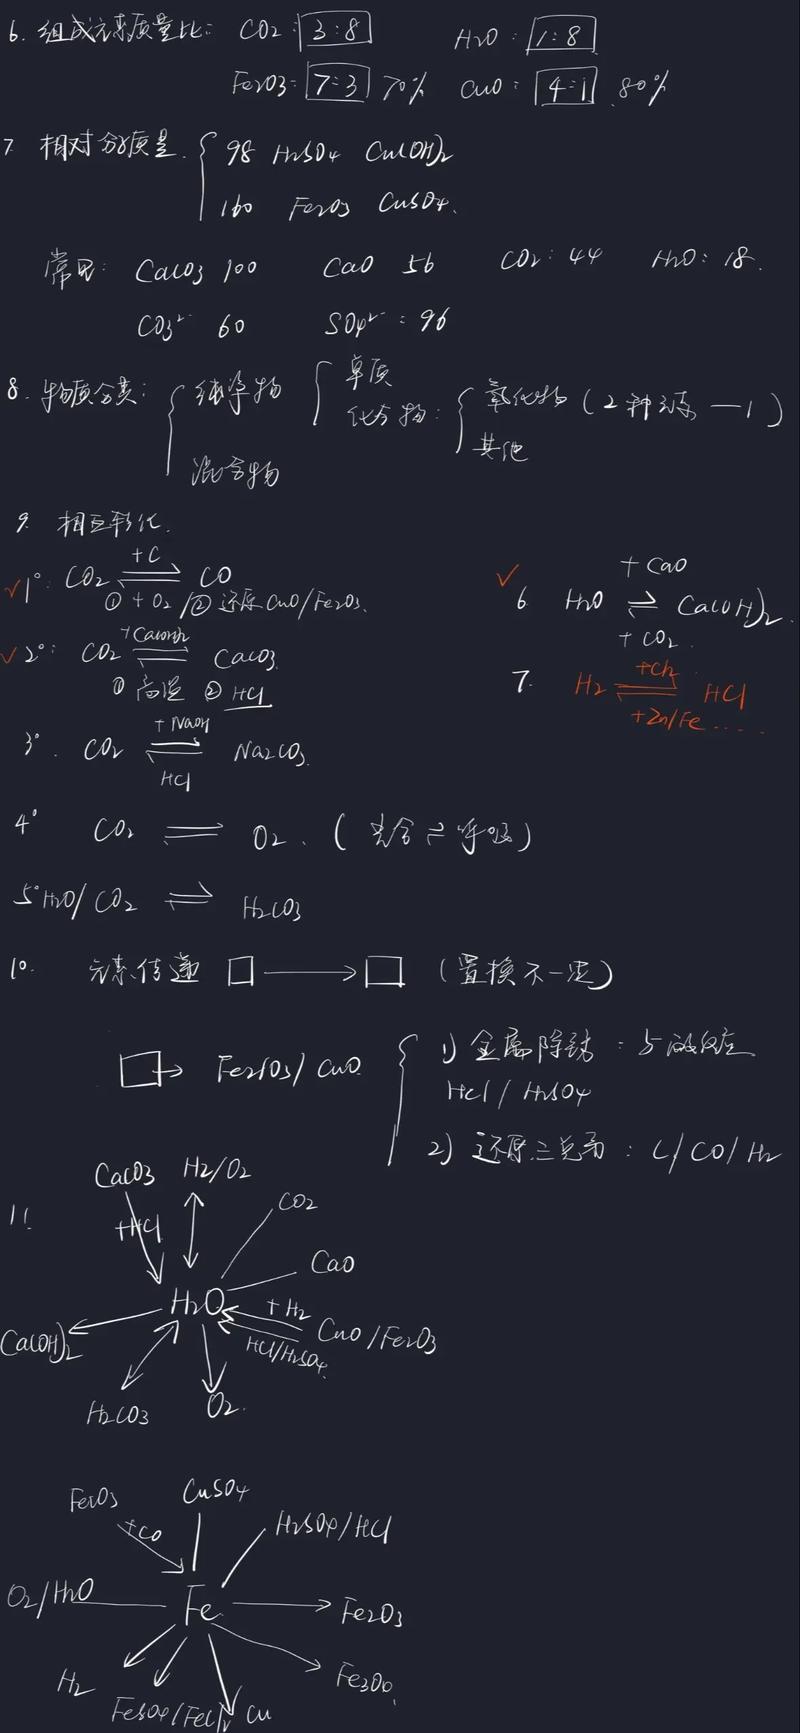 6. 组成元素质量比: CO2: 3:8 H2O: 1:8
Fe2O3: 7:3 70% CuO: 4:1 80%
7. 相对分子质量. 98 H2SO4 Cu(OH)2
160 Fe2O3 CuSO4.
常见: CaCO3 100 CaO 56 CO2: 44 H2O: 18.
CO3²⁻ 60 SO4²⁻: 96
8. 物质分类: 纯净物 单质
化合物: 氧化物 (2种元素 一1)
其他
混合物
9. 相互转化.
+C
✓1°: CO2 ⇌ CO
① +O2 / ② 还原CuO/Fe2O3.
+Ca(OH)2
✓2°: CO2 ⇌ CaCO3.
① 高温 ② HCl
+NaOH
3°. CO2 ⇌ Na2CO3.
HCl
4° CO2 ⇌ O2. (光合⇌呼吸)
5° H2O/CO2 ⇌ H2CO3
✓ +CaO
6. H2O ⇌ Ca(OH)2.
+CO2.
+Cl2
7. H2 ⇌ HCl
+Zn/Fe......
10. 元素传递 □→□ (置换不一定)
□→ Fe2O3/CuO 1) 金属除锈: 与酸反应
HCl/H2SO4
2) 还原三兄弟: C/CO/H2
11. CaCO3 H2/O2
+HCl CO2
CaO
H2O +H2
CuO/Fe2O3
HCl/H2SO4.
Ca(OH)2
H2CO3 O2.
Fe2O3 CuSO4
+CO H2SO4/HCl
O2/H2O Fe Fe2O3
H2 Fe3O4.
FeSO4/FeCl2 Cu